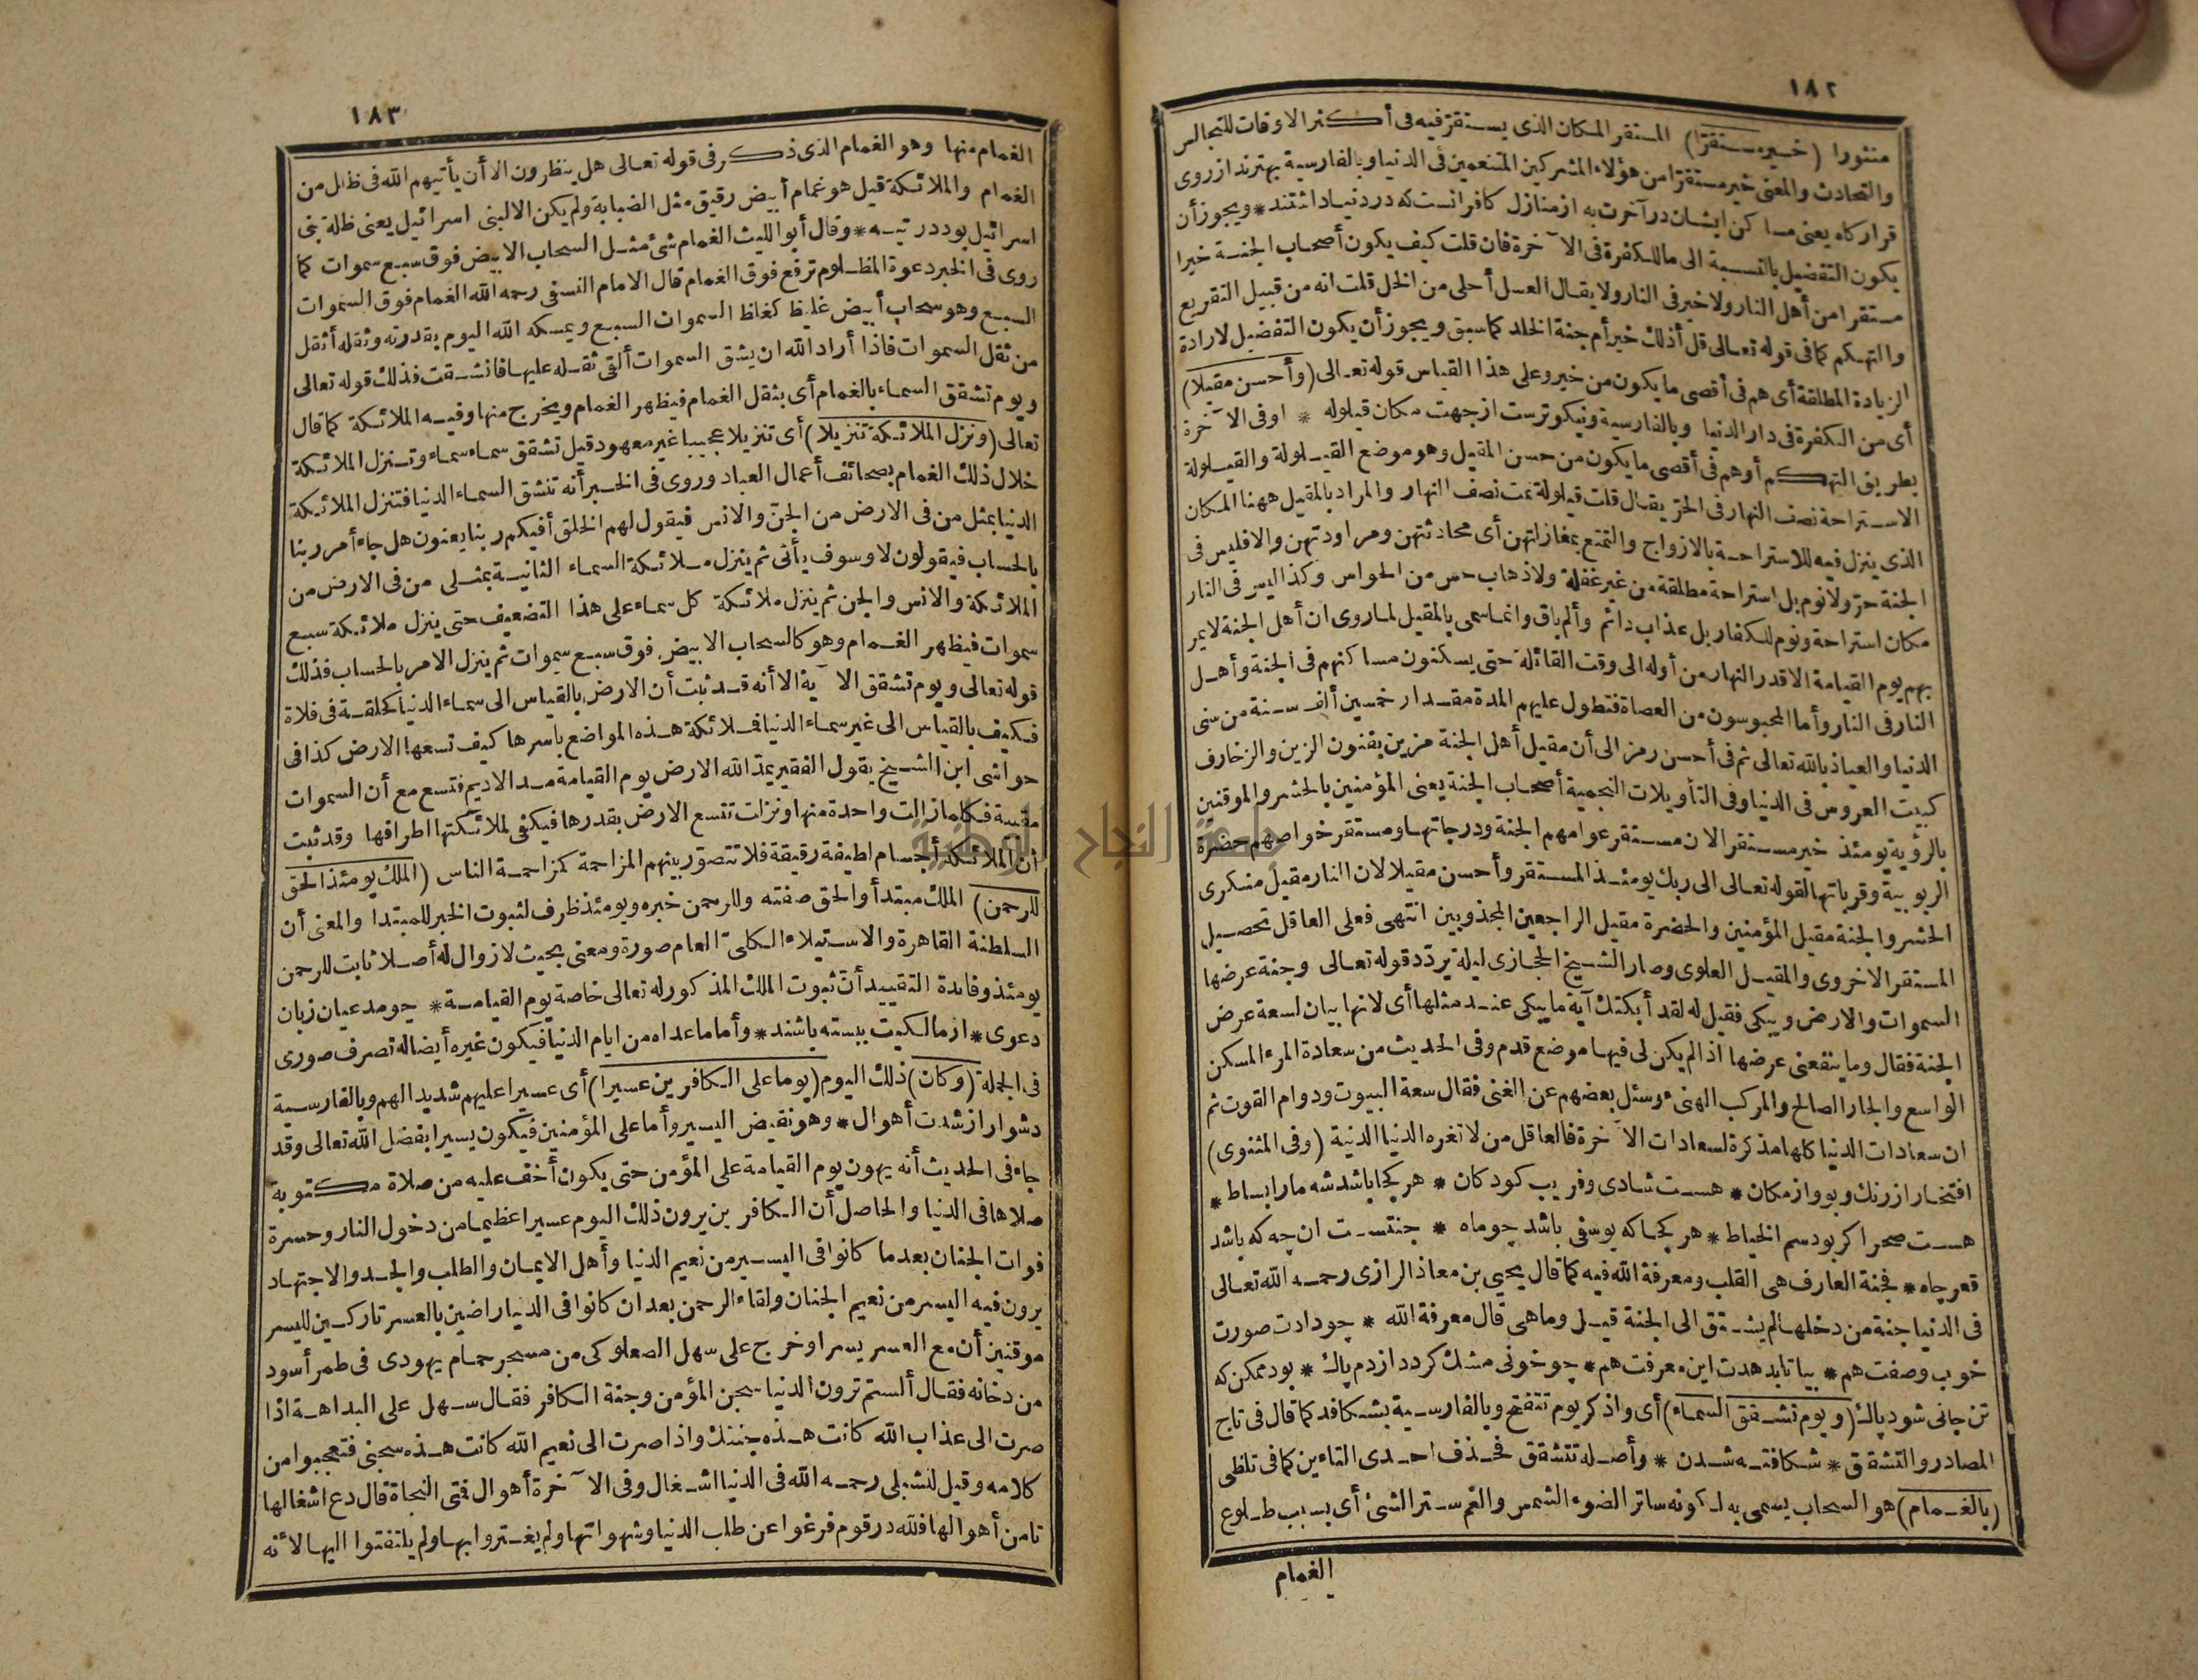 ١٨٢
منثورا (خير مستقرا) المستقر المكان الذى يستقر فيه فى أكثر الاوقات للتجالس
والتحادث والمعنى خير مستقرا من هؤلاء المشركين المتنعمين فى الدنيا وبالفارسية بهترند ازروى
قراركاه يعنى مساكن ايشان در آخرت به از منازل كافرانست كه در دنيا داشتند * ويجوز أن
يكون التفضيل بالنسبة الى ما للكفرة فى الآخرة فان قلت كيف يكون أصحاب الجنة خيرا
مستقرا من أهل النار ولا خير فى النار ولا يقال العسل أحلى من الخل قلت انه من قبيل التقريع
والتهكم كما فى قوله تعالى قل أذلك خير أم جنة الخلد كما سبق ويجوز أن يكون التفضيل لارادة
الزيادة المطلقة أى هم فى أقصى ما يكون من خير وعلى هذا القياس قوله تعالى (وأحسن مقيلا)
أى من الكفرة فى دار الدنيا وبالفارسية ونيكوترست ازجهت مكان قيلوله * اوفى الآخرة
بطريق التهكم أوهم فى أقصى ما يكون من حسن المقيل وهو موضع القيلولة والقيلولة
الاستراحة نصف النهار فى الحر يقال قلت قيلولة نمت نصف النهار والمراد بالمقيل ههنا المكان
الذى ينزل فيه للاستراحة بالازواج والتمتع بمغازلتهن أى محادثتهن ومراودتهن والافليس فى
الجنة حر ولا نوم بل استراحة مطلقة من غير غفلة ولا ذهاب حس من الحواس وكذا ليس فى النار
مكان استراحة ونوم للكفار بل عذاب دائم وألم باق وانما سمى بالمقيل لما روى ان أهل الجنة لا يمر
بهم يوم القيامة الا قدر النهار من أوله الى وقت القائلة حتى يسكنون مساكنهم فى الجنة وأهل
النار فى النار وأما المحبوسون من العصاة فتطول عليهم المدة مقدار خمسين ألف سنة من سنى
الدنيا والعياذ بالله تعالى ثم فى أحسن رمز الى أن مقيل أهل الجنة مزين بفنون الزين والزخارف
كبيت العروس فى الدنيا وفى التأويلات النجمية أصحاب الجنة يعنى المؤمنين بالحشر والموقنين
بالرؤية يومئذ خير مستقر الان مستقر عوامهم الجنة ودرجاتها ومستقر خواصهم حضرة
الربوبية وقرباتها لقوله تعالى الى ربك يومئذ المستقر وأحسن مقيلا لان النار مقيل منكرى
الحشر والجنة مقيل المؤمنين والحضرة مقيل الراجعين المجذوبين انتهى فعلى العاقل تحصيل
المستقر الاخروى والمقيل العلوى وصار الشيخ الحجازى ليلة يردد قوله تعالى وجنة عرضها
السموات والارض ويبكى فقيل له لقد أبكتك آية ما يبكى عند مثلها أى لانها بيان لسعة عرض
الجنة فقال وما ينفعنى عرضها اذ الم يكن لى فيها موضع قدم وفى الحديث من سعادة المرء المسكن
الواسع والجار الصالح والمركب الهنىء وسئل بعضهم عن الغنى فقال سعة البيوت ودوام القوت ثم
ان سعادات الدنيا كلها مذكرة لسعادات الآخرة فالعاقل من لا تغره الدنيا الدنية (وفى المثنوى)
افتخار از رنك وبو واز مكان * هست شادى وفريب كودكان * هركجا باشد شه مارا بساط *
هست صحرا كر بود سم الخياط * هركجا كه يوسفى باشد چو ماه * جنتست ان چه كه باشد
قعر چاه * فجنة العارف هى القلب ومعرفة الله فيه كما قال يحيى بن معاذ الرازى رحمه الله تعالى
فى الدنيا جنة من دخلها لم يشتق الى الجنة قيل وما هى قال معرفة الله * چو دادت صورت
خوب وصفت هم * بيا تا بدهدت اين معرفت هم * چو خونى مشك كردد از دم پاك * بود ممكن كه
تن جانى شود پاك (ويوم تشقق السماء) أى واذكر يوم تتفتح وبالفارسية بشكافد كما قال فى تاج
المصادر والتشقق * شكافته شدن * وأصله تتشقق فحذف احدى التاءين كما فى تلظى
(بالغمام) هو السحاب يسمى به لكونه ساترا لضوء الشمس والغم ستر الشئ أى بسبب طلوع
الغمام
١٨٣
الغمام منها وهو الغمام الذى ذكر فى قوله تعالى هل ينظرون الا أن يأتيهم الله فى ظلل من
الغمام والملائكة قيل هو غمام أبيض رقيق مثل الضبابة ولم يكن الا لبنى اسرائيل يعنى ظلة بنى
اسرائيل بود در تيه * وقال أبو الليث الغمام شئ مثل السحاب الابيض فوق سبع سموات كما
روى فى الخبر دعوة المظلوم ترفع فوق الغمام قال الامام النسفى رحمه الله الغمام فوق السموات
السبع وهو سحاب أبيض غليظ كغلظ السموات السبع ويمسكه الله اليوم بقدرته وثقله أثقل
من ثقل السموات فاذا أراد الله ان يشق السموات ألقى ثقله عليها فانشقت فذلك قوله تعالى
ويوم تشقق السماء بالغمام أى بثقل الغمام فيظهر الغمام ويخرج منها وفيه الملائكة كما قال
تعالى (ونزل الملائكة تنزيلا) أى تنزيلا عجيبا غير معهود قيل تشقق سماء سماء وتنزل الملائكة
خلال ذلك الغمام بصحائف أعمال العباد وروى فى الخبر أنه تنشق السماء الدنيا فتنزل الملائكة
الدنيا بمثل من فى الارض من الجن والانس فيقول لهم الخلق أفيكم ربنا يعنون هل جاء أمر ربنا
بالحساب فيقولون لا وسوف يأتى ثم ينزل ملائكة السماء الثانية بمثلى من فى الارض من
الملائكة والانس والجن ثم ينزل ملائكة كل سماء على هذا التضعيف حتى ينزل ملائكة سبع
سموات فيظهر الغمام وهو كالسحاب الابيض فوق سبع سموات ثم ينزل الامر بالحساب فذلك
قوله تعالى ويوم تشقق الآية الا أنه قد ثبت أن الارض بالقياس الى سماء الدنيا كحلقة فى فلاة
فكيف بالقياس الى غير سماء الدنيا فملائكة هذه المواضع باسرها كيف تسعها الارض كذا فى
حواشى ابن الشيخ يقول الفقير يمد الله الارض يوم القيامة مد الاديم فتسع مع أن السموات
مقببة فكلما زالت واحدة منها ونزلت تتسع الارض بقدرها فيكفى لملائكتها اطرافها وقد ثبت
أن الملائكة أجسام لطيفة رقيقة فلا تتصور بينهم المزاحمة كمزاحمة الناس (الملك يومئذ الحق
للرحمن) الملك مبتدأ والحق صفته وللرحمن خبره ويومئذ ظرف لثبوت الخبر للمبتدا والمعنى أن
السلطنة القاهرة والاستيلاء الكلى العام صورة ومعنى بحيث لا زوال له أصلا ثابت للرحمن
يومئذ وفائدة التقييد أن ثبوت الملك المذكور له تعالى خاصة يوم القيامة * چو مدعيان زبان
دعوى * از مالكيت ببسته باشند * وأما ما عداه من ايام الدنيا فيكون غيره أيضا له تصرف صورى
فى الجملة (وكان) ذلك اليوم (يوما على الكافرين عسيرا) أى عسيرا عليهم شديد الهم وبالفارسية
دشوار از شدت أهوال * وهو نقيض اليسير وأما على المؤمنين فيكون يسيرا بفضل الله تعالى وقد
جاء فى الحديث أنه يهون يوم القيامة على المؤمن حتى يكون أخف عليه من صلاة مكتوبة
صلاها فى الدنيا والحاصل أن الكافرين يرون ذلك اليوم عسيرا عظيما من دخول النار وحسرة
فوات الجنان بعدما كانوا فى اليسير من نعيم الدنيا وأهل الايمان والطلب والجد والاجتهاد
يرون فيه اليسر من نعيم الجنان ولقاء الرحمن بعد ان كانوا فى الدنيا راضين بالعسر تاركين لليسر
موقنين أن مع العسر يسرا وخرج على سهل الصعلوكى من مسجر حمام يهودى فى طمر أسود
من دخانه فقال ألستم ترون الدنيا سجن المؤمن وجنة الكافر فقال سهل على البداهة اذا
صرت الى عذاب الله كانت هذه جنتك واذا صرت الى نعيم الله كانت هذه سجنى فتعجبوا من
كلامه وقيل للشبلى رحمه الله فى الدنيا اشغال وفى الآخرة أهوال فمتى النجاة قال دع اشغالها
تامن أهوالها فلله در قوم فرغوا عن طلب الدنيا وشهواتها ولم يغتروا بها ولم يلتفتوا اليها لانه
جامعة النجاح الوطنية